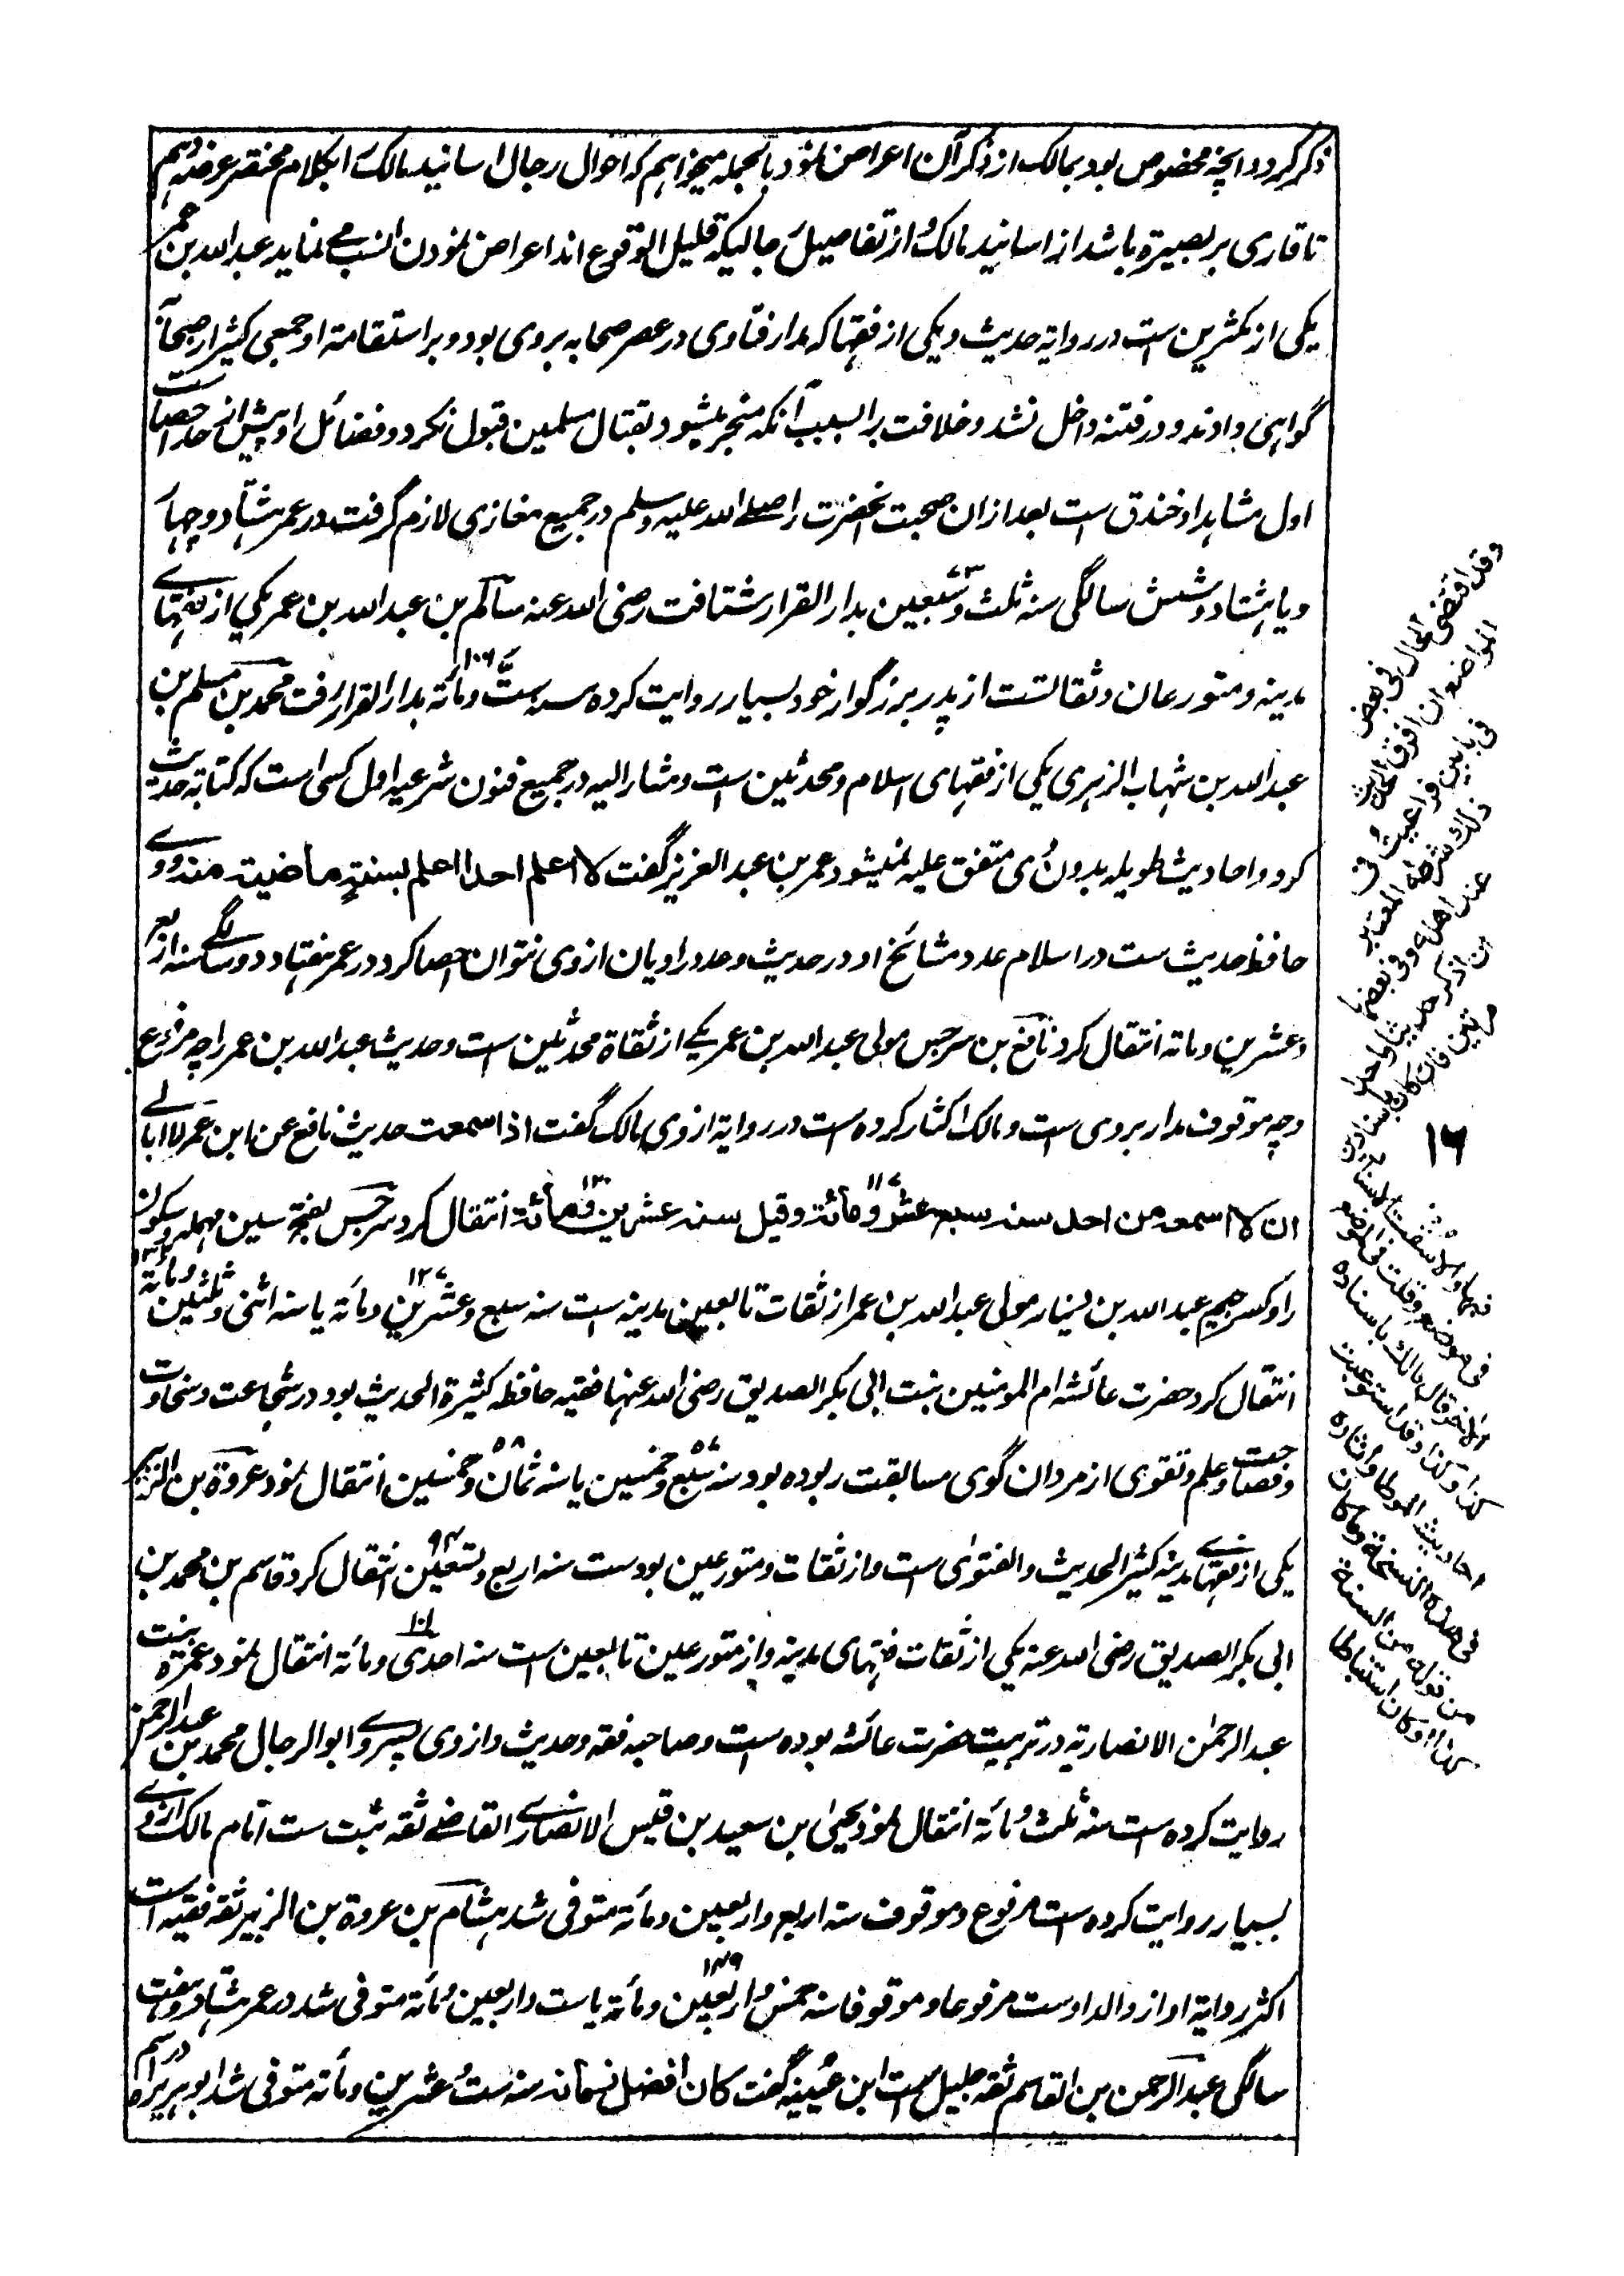 ذکر کرد و آنچه مخصوص بود بمالک از ذکر آن اعراض نمود بالجمله میخواهم که احوال رجال اسانید مالک بکلام مختصر عرضه دهم
تا قاری بر بصیرة باشد از اسانید مالک و از تفاصیل رجالیکه قلیل الوقوع اند اعراض نمودن انسب مے نماید عبدالله بن عمر
یکی از مکثرین ست در روایة حدیث و یکی از فقها که مدار فتاوی در عصر صحابه بر وی بود و بر استقامة او جمعی کثیر از صحابه
گواہی دادند و در فتنه داخل نشد و خلافت را بسبب آنکه منجر میشود بقتال مسلمین قبول نکرد و فضائل او بیش از حد احصاست
اول مشاہد او خندق ست بعد ازان صحبت آنحضرت را صلے الله علیه وسلم در جمیع مغازی لازم گرفت در عمر ہشتاد و چہار
و یا ہشتاد و شش سالگی سنه ثلث و سبعین ۷۳ بدار القرار شتافت رضی الله عنه سالم بن عبدالله بن عمر یکی از فقہائے
مدینه و متورعان و ثقات ست از پدر بزرگوار خود بسیار روایت کرده سنه ست و مائة ۱۰۶ بدار القرار رفت محمد بن مسلم بن
عبدالله بن شہاب الزہری یکی از فقہای اسلام و محدثین ست و مشار الیه در جمیع فنون شرعیه اول کسی است که کتابة حدیث
کرد و احادیث طویله بدون وی متفق علیه نمیشود عمر بن عبدالعزیز گفت لا اعلم احدا اعلم بسنة ماضیة منه وے
حافظ حدیث ست در اسلام عدد مشائخ او در حدیث و عدد راویان از وی نتوان احصا کرد در عمر ہفتاد و دو سالگے سنه اربع
و عشرین و مائة انتقال کرد نافع بن سرجس مولی عبدالله بن عمر یکے از ثقاة محدثین ست و حدیث عبدالله بن عمر را چه مرفوع
و چه موقوف مدار بر وی ست و مالک اکثار کرده ست در روایة از وی مالک گفت اذا سمعت حدیث نافع عن ابن عمر لا ابالے
ان لا اسمعه من احد سنه سبع عشر و مائة ۱۱۷ و قیل سنه عشرین و مائة ۱۲۰ انتقال کرد سرجس بفتح سین مہمله و سکون
را و کسر جیم عبدالله بن دینار مولی عبدالله بن عمر از ثقات تابعین مدینه ست سنه سبع و عشرین و مائة ۱۲۷ یا سنه اثنی و ثلثین و مائة ۱۳۲
انتقال کرد حضرت عائشه ام المومنین بنت ابی بکر الصدیق رضی الله عنہا فقیه حافظه کثیرة الحدیث بود در شجاعت و سخاوت
و فصاحت و علم و تقوی از مردان گوی مسابقت ربوده بود سنه سبع و خمسین ۵۷ یا سنه ثمان و خمسین ۵۸ انتقال نمود عروة بن الزبیر
یکی از فقہائے مدینه کثیر الحدیث والفتوی ست و از ثقات و متورعین بود ست سنه اربع و تسعین ۹۴ انتقال کرد قاسم بن محمد بن
ابی بکر الصدیق رضی الله عنه یکی از ثقات فقہای مدینه و از متورعین تابعین ست سنه احدی و مائة ۱۰۱ انتقال نمود عمرة بنت
عبدالرحمن الانصاریة در تربیت حضرت عائشه بوده ست و صاحبه فقه و حدیث و از وی پسر وے ابوالرجال محمد بن عبدالرحمن
روایت کرده ست سنه ثلث و مائة انتقال نمود یحیی بن سعید بن قیس الانصارے القاضے ثقه ثبت ست امام مالک از وے
بسیار روایت کرده ست مرفوع و موقوف سنه اربع و اربعین و مائة متوفی شد ہشام بن عروة بن الزبیر ثقه فقیه است
اکثر روایة او از والد اوست مرفوعا و موقوفا سنه خمس و اربعین و مائة یا ست و اربعین و مائة متوفی شد در عمر ہشتاد و ہفت
سالگی عبدالرحمن بن القاسم ثقه جلیل ست ابن عیینه گفت کان افضل زمانه سنه ست و عشرین و مائة متوفی شد ابوہریره در اسم
وقد اقتضی الحال فی بعض
المواضع ان افرق الحدیث
فی بابین فراعیت فی
ذلك شرطه المعتبر
عند اهله وفی بعضها
ان اذکر حدیثا واحدا
مرتین فان کان باسنادین
۱۶
فیها والا سقت الاسناد
فی موضع وقلت فی الموضع
الآخر قال مالك باسناده
کذا وکذا وقد استوعبت
احادیث الموطا وآثاره
فی هذه النسخة وما کان
من قوله من السنة
کذا او کان استنباطا